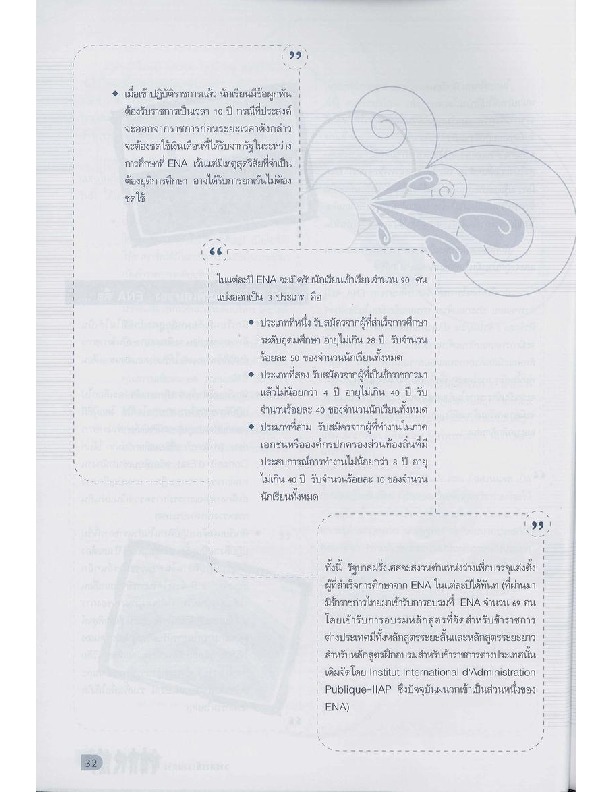 ◆ เมื่อเข้าปฏิบัติราชการแล้ว นักเรียนมีข้อผูกพัน
ต้องรับราชการเป็นเวลา 10 ปี กรณีที่ประสงค์
จะออกจากราชการก่อนระยะเวลาดังกล่าว
จะต้องชดใช้เงินเดือนที่ได้รับจากรัฐในระหว่าง
การศึกษาที่ ENA เว้นแต่มีเหตุสุดวิสัยที่จำเป็น
ต้องยุติการศึกษา อาจได้รับการยกเว้นไม่ต้อง
ชดใช้
ในแต่ละปี ENA จะเปิดรับนักเรียนเข้าเรียนจำนวน 90 คน
แบ่งออกเป็น 3 ประเภท คือ
● ประเภทที่หนึ่ง รับสมัครจากผู้ที่สำเร็จการศึกษา
ระดับอุดมศึกษา อายุไม่เกิน 28 ปี รับจำนวน
ร้อยละ 50 ของจำนวนนักเรียนทั้งหมด
● ประเภทที่สอง รับสมัครจากผู้ที่เป็นข้าราชการมา
แล้วไม่น้อยกว่า 4 ปี อายุไม่เกิน 40 ปี รับ
จำนวนร้อยละ 40 ของจำนวนนักเรียนทั้งหมด
● ประเภทที่สาม รับสมัครจากผู้ที่ทำงานในภาค
เอกชนหรือองค์กรปกครองส่วนท้องถิ่นที่มี
ประสบการณ์การทำงานไม่น้อยกว่า 8 ปี อายุ
ไม่เกิน 40 ปี รับจำนวนร้อยละ 10 ของจำนวน
นักเรียนทั้งหมด
ทั้งนี้ รัฐบาลฝรั่งเศสจะสงวนตำแหน่งว่างเพื่อบรรจุแต่งตั้ง
ผู้ที่สำเร็จการศึกษาจาก ENA ในแต่ละปีได้ทันที (ที่ผ่านมา
มีข้าราชการไทยมาเข้ารับการอบรมที่ ENA จำนวน 69 คน
โดยเข้ารับการอบรมหลักสูตรที่จัดสำหรับข้าราชการ
ต่างประเทศมีทั้งหลักสูตรระยะสั้นและหลักสูตรระยะยาว
สำหรับหลักสูตรฝึกอบรมสำหรับข้าราชการต่างประเทศนั้น
เดิมจัดโดย Institut International d'Administration
Publique-IIAP ซึ่งปัจจุบันผนวกเข้าเป็นส่วนหนึ่งของ
ENA)
32